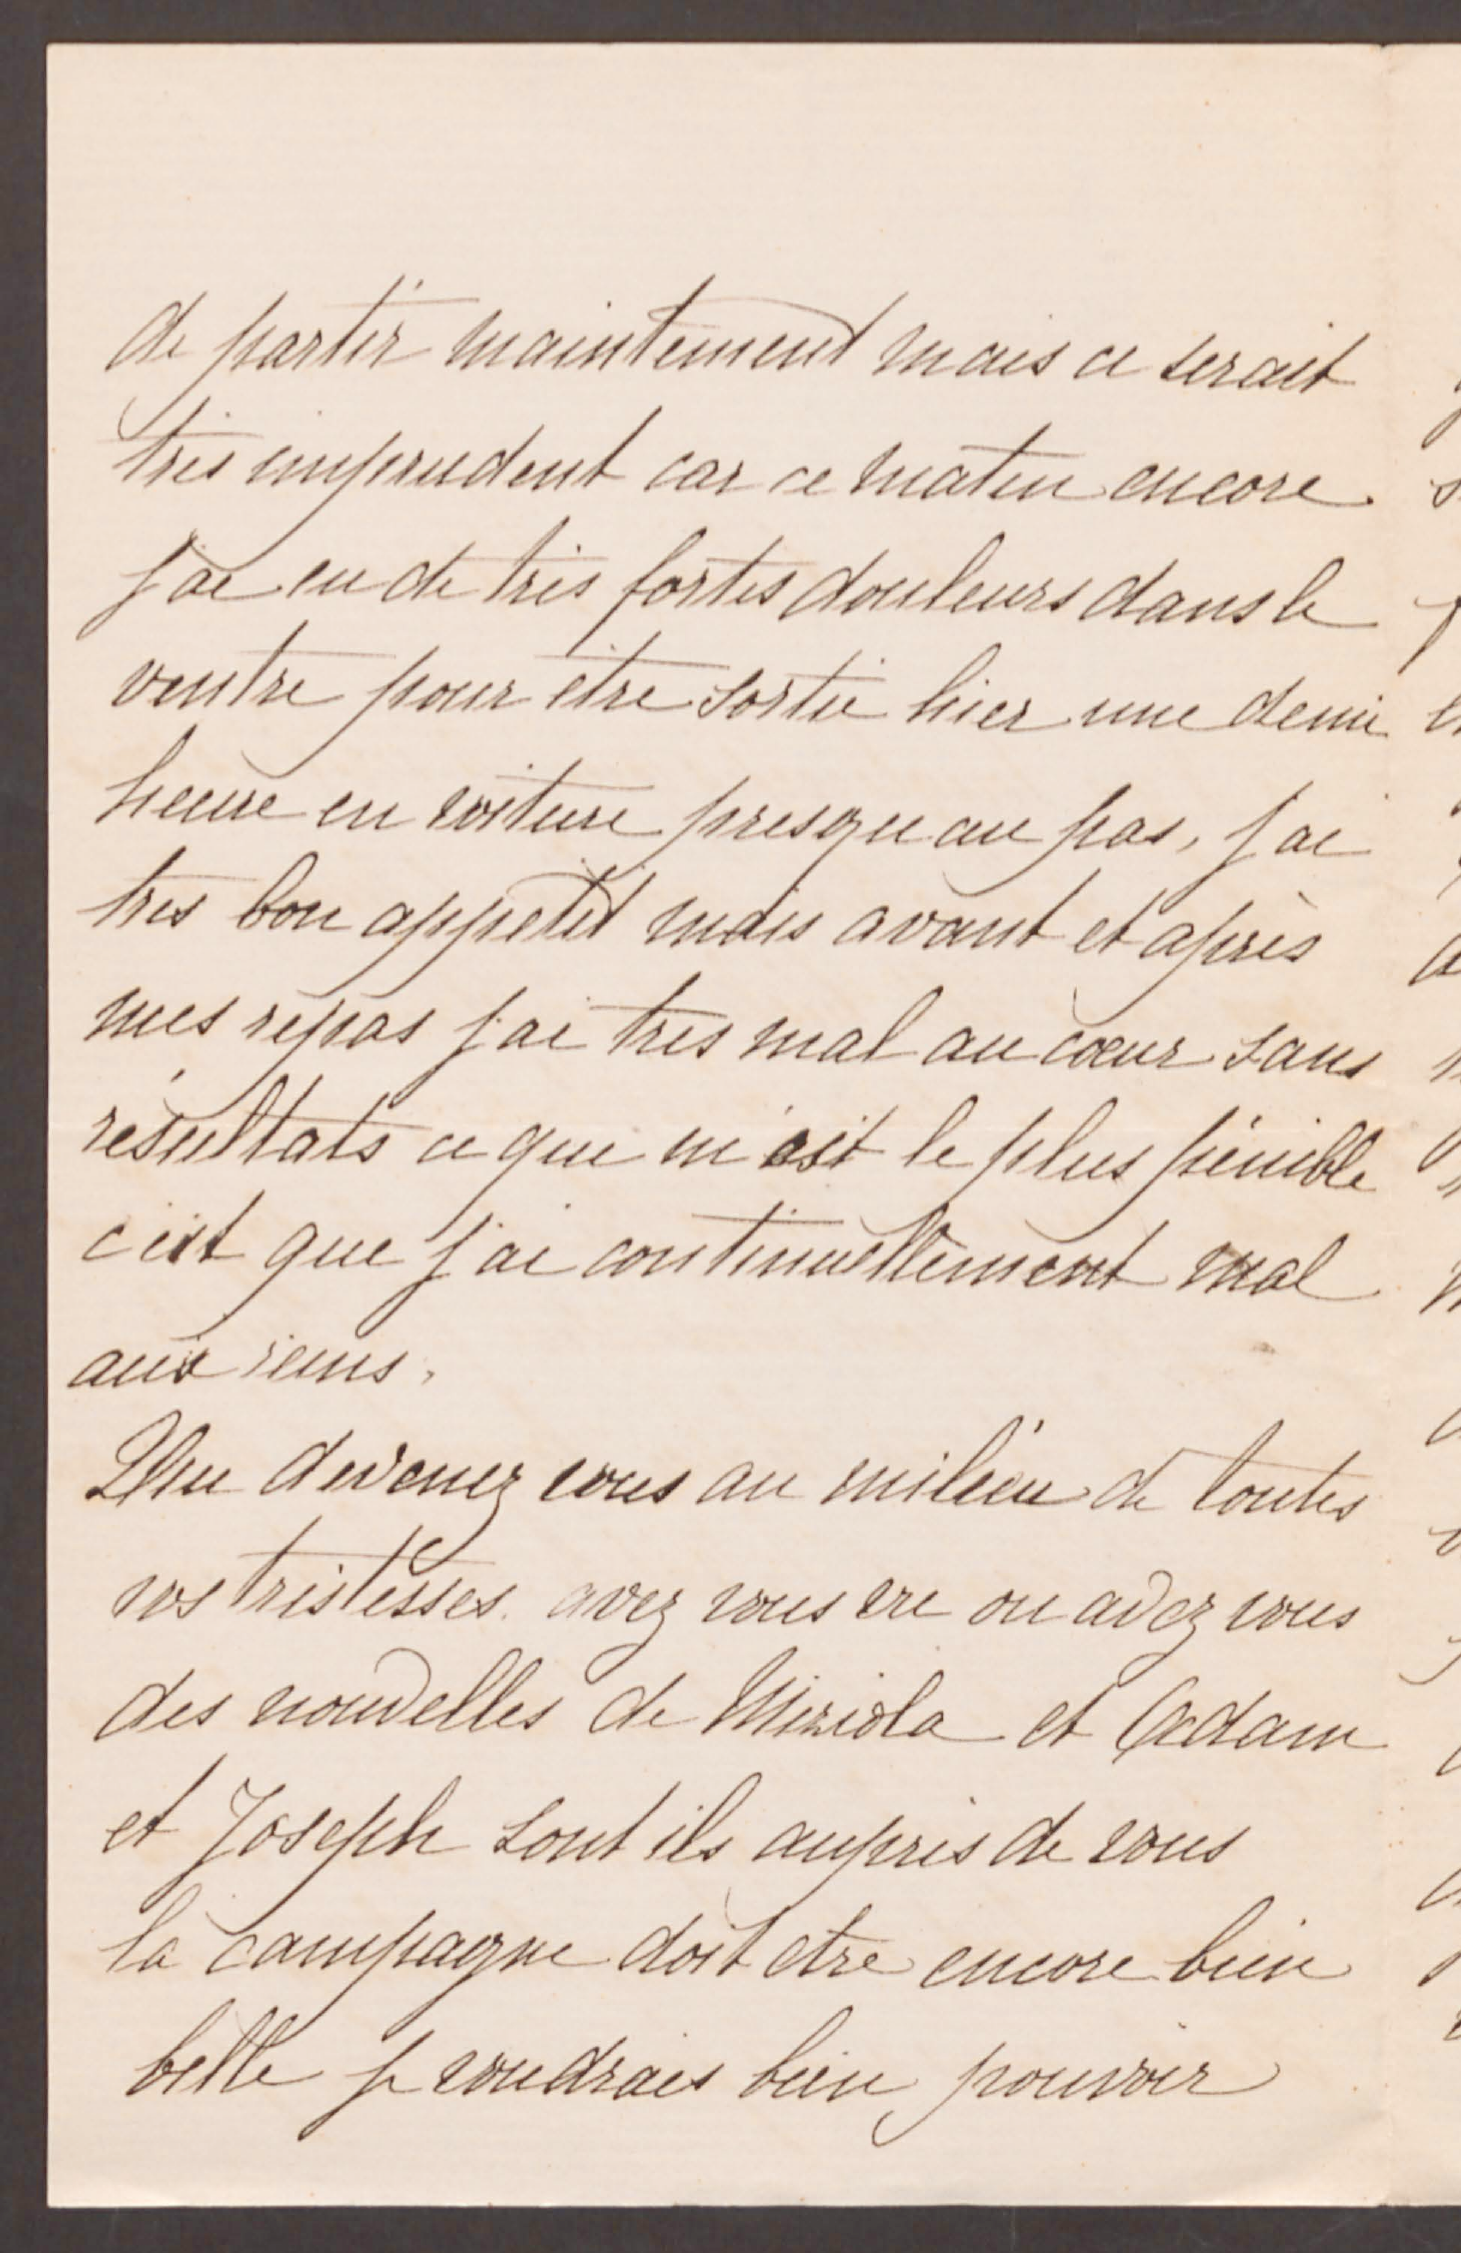 de partir maintement mais ce serait
très imprudent car ce matin encore
j'ai eu de très fortes douleurs dans le
ventre pour être sortie hier une demie
heure en voiture presqu au pas, j'ai
tres bon appetit mais avant et après
mes repas j'ai tres mal au cœur sans
résultats ce que m'est le plus pénible
c'est que j'ai continuellement mal
aux reins.
Que devenez vous au milieu de toutes
vos tristesses. avez vous vu ou avez vous
des nouvelles de Miziola et Adam
et Joseph sont ils auprès de vous
la campagne doit etre encore bien
belle je voudrais bien pouvoir